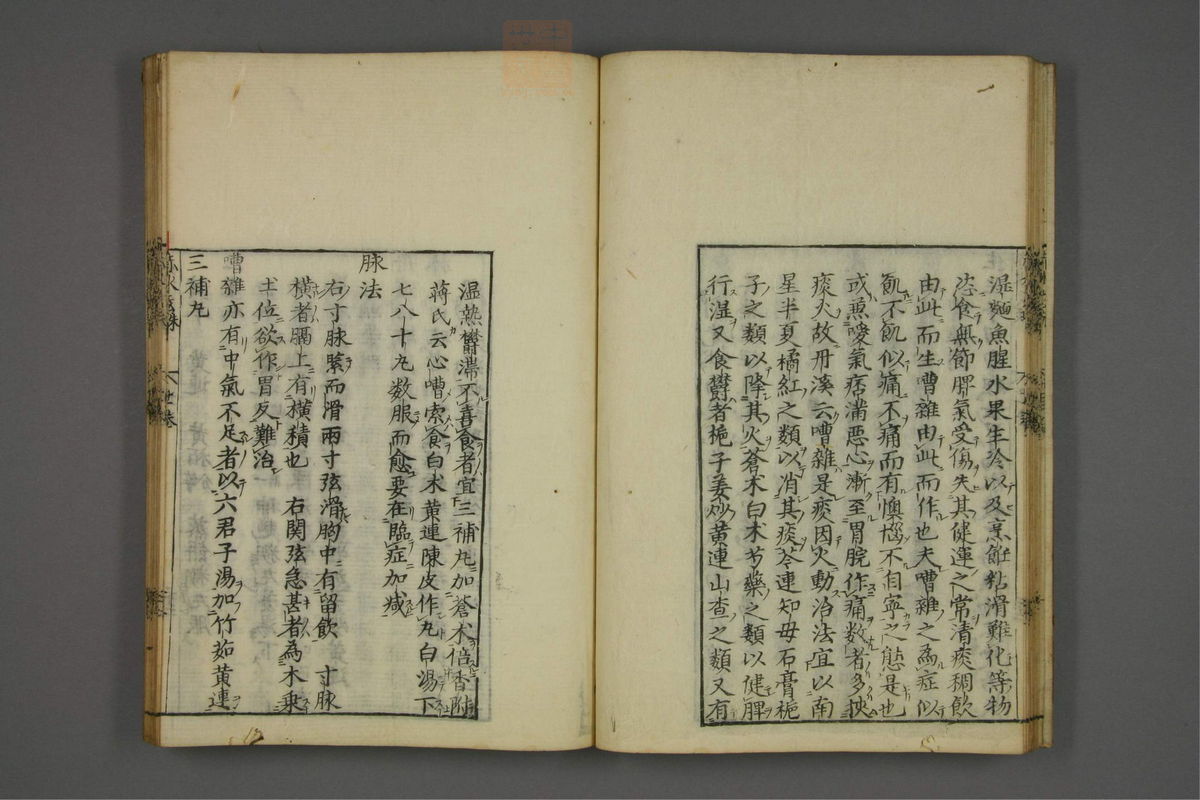 湿麺魚腥水果生冷以及烹飪粘滑難化等物
恣食無節脾氣受傷失其健運之常清痰稠飲
由此而生嘈雜由此而作也夫嘈雜之為症似
飢不飢似痛不痛而有懊憹不自寧之態是也
或兼噯氣痞満悪心漸至胃脘作痛数者多挾
痰火故丹溪云嘈雜是痰因火動治法宜以南
星半夏橘紅之類以消其痰芩連知母石膏梔
子之類以降其火蒼朮白朮芍藥之類以健脾
行湿又食欝者梔子姜炒黄連山査之類又有
湿熱欝滞不喜食者宜三補丸加蒼朮倍香附
蒋氏云心嘈索食白朮黄連陳皮作丸白湯下
七八十丸数服而愈要在臨症加减
脉法
右寸脉緊而滑兩寸弦滑胸中有留飲 寸脉
横者膈上有横積也 右関弦急甚者為木乗
土位欲作胃反難治
嘈雜亦有中氣不足者以六君子湯加竹茹黄連
三補丸
赤水玄珠